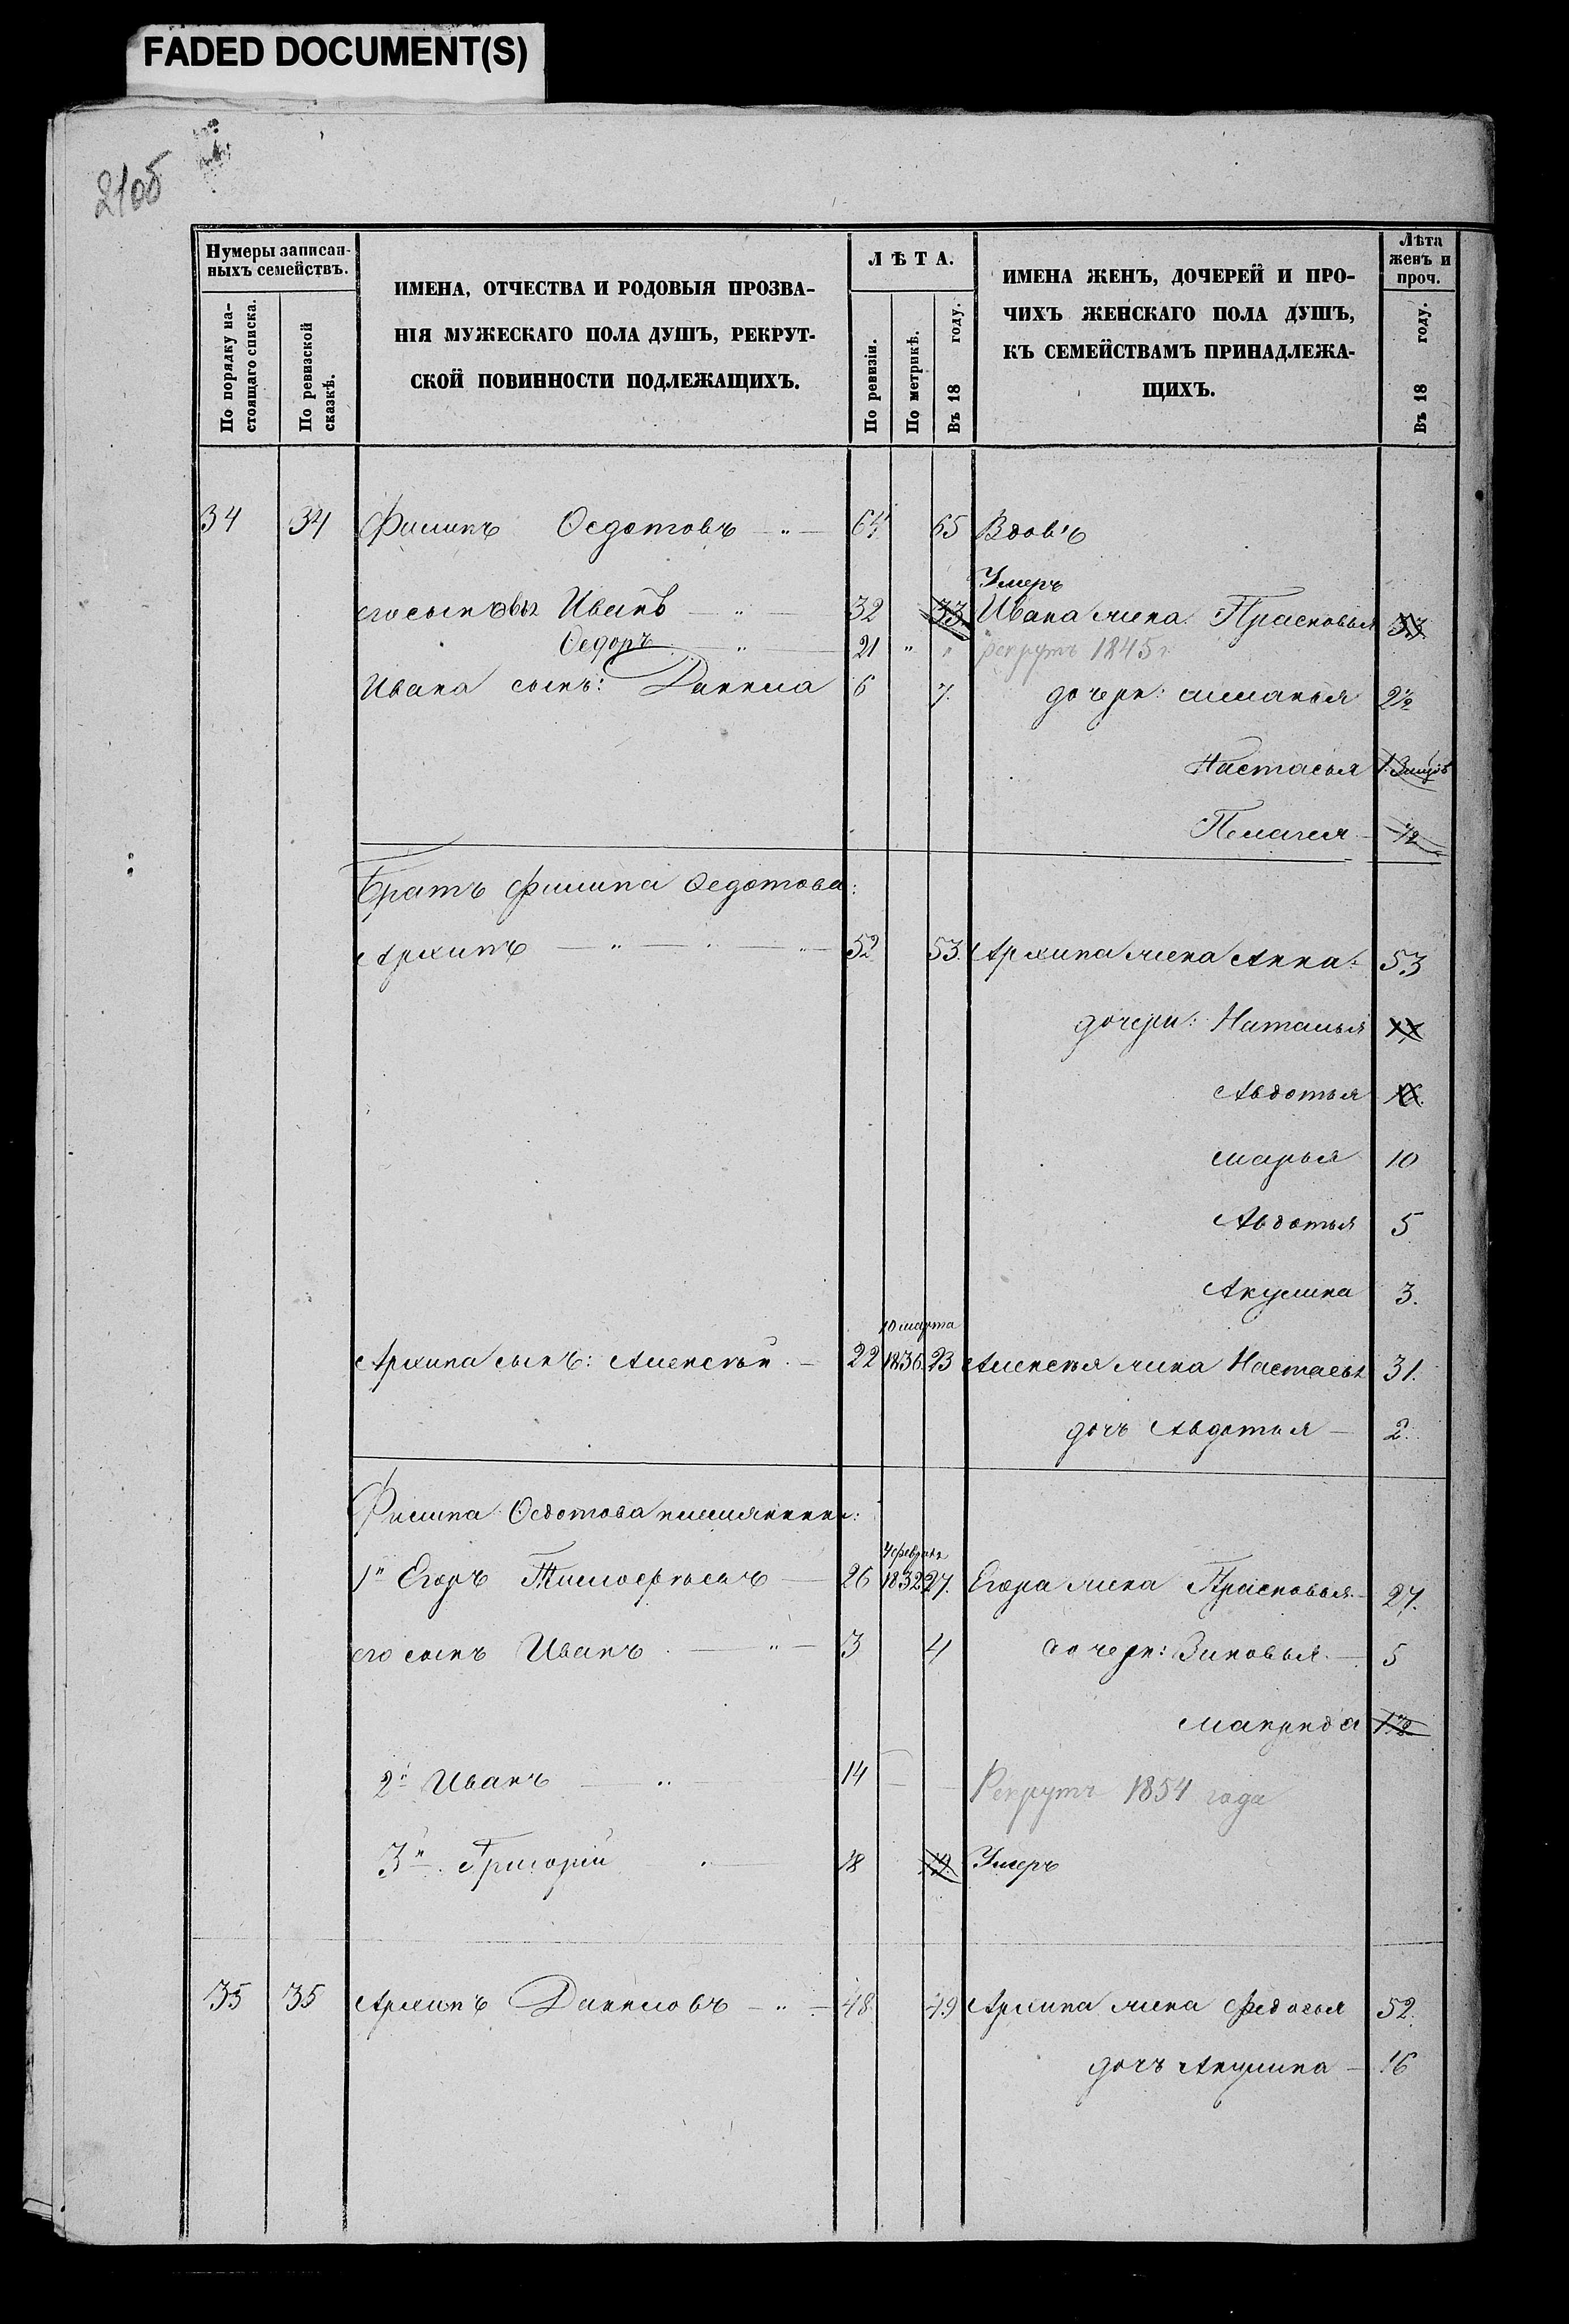 FADED DOCUMENT(S)
210б
Нумеры записан-
ныхъ семействъ.
По порядку на-
стоящаго списка.
По ревизской
сказкѣ.
ИМЕНА, ОТЧЕСТВА И РОДОВЫЯ ПРОЗВА-
НІЯ МУЖЕСКАГО ПОЛА ДУШЪ, РЕКРУТ-
СКОЙ ПОВИННОСТИ ПОДЛЕЖАЩИХЪ.
ЛѢТА.
По ревизіи.
По метрикѣ.
Въ 18 году.
ИМЕНА ЖЕНЪ, ДОЧЕРЕЙ И ПРО-
ЧИХЪ ЖЕНСКАГО ПОЛА ДУШЪ,
КЪ СЕМЕЙСТВАМЪ ПРИНАДЛЕЖА-
ЩИХЪ.
Лѣта
женъ и
проч.
Въ 18 году.
34 34 Филипъ Ѳедотовъ — " — 64 65 Вдовъ
Умеръ
его сыновья Иванъ — " — 32 33 Ивана жена Прасковья 33
Ѳедоръ — " — 21 " " рекрутъ 1845 г.
Ивана сынъ: Данила 6 7. дочери: Маланья 2½
Настасья 1.
Пелагея — ½
Братъ Филипа Ѳедотова:
Архипъ — " — " — " — 52 53. Архипа жена Анна: 53
дочери: Наталья
Авдотья
Марья 10
Авдотья 5
Акулина 3.
10 марта
Архипа сынъ: Алексѣй — 22 1836 23 Алексѣя жена Настасья 31.
дочь Авдотья — 2.
Филипа Ѳедотова племянники:
4 февраля
1й Егоръ Тимофѣевъ — 26 1832 27. Егора жена Прасковья — 27.
его сынъ Иванъ — " — 3 4 дочери: Зиновья — 5
Макрида 1½
2й Иванъ — " — 14 — — Рекрутъ 1854 года
3й Григорій — " — 18 19. Умеръ
35 35 Архипъ Даниловъ — " — 48 49 Архипа жена Федосья 52.
дочь Акулина — 16